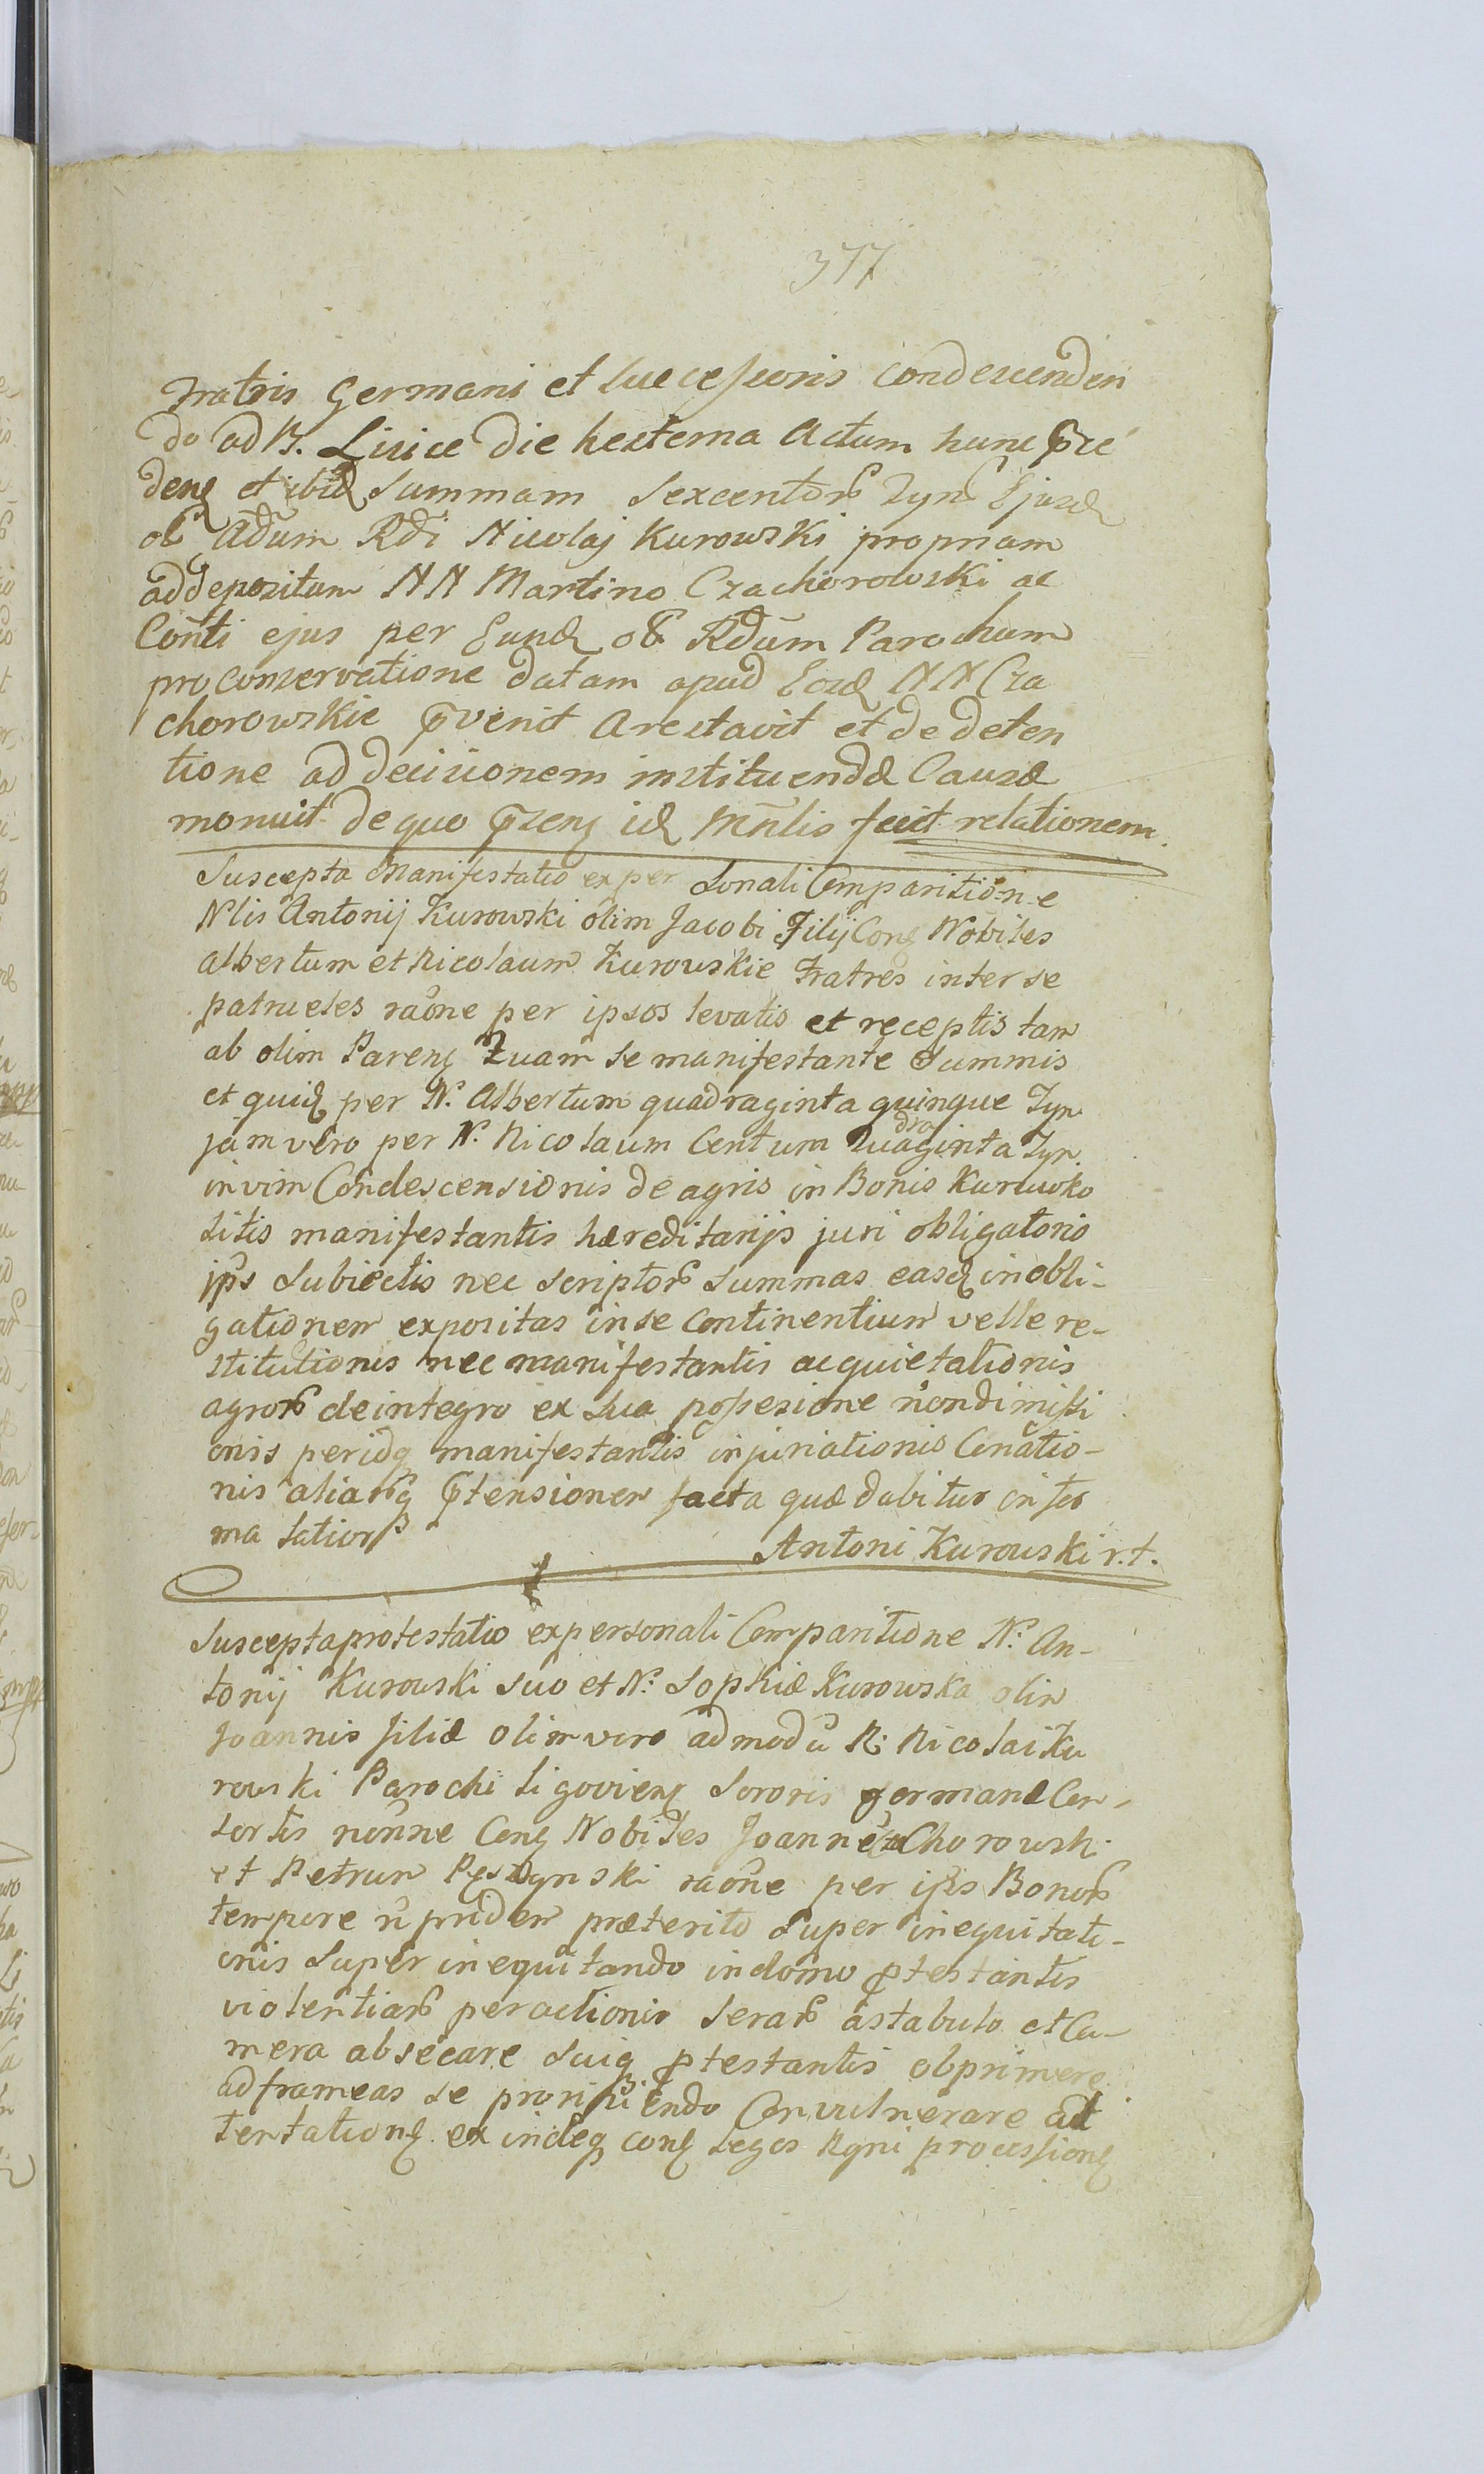 377
Fratris Germani et Successoris Condescenden
do ad B. Lisice die hesterna Actum hunc præ
den et ibid Summam Sexcentor Tyn Ejusd
ol Adum Rdi Nicolaj Kurowski propriam
ad depositum NN Martino Czachorowski ac
Conti ejus per Eund ol Rdum Parochum
pro conservatione datam apud Eosd NN Cza
chorowskie pvenit Arestavit et de deten
tione ad decisionem instituendæ Causæ
monuit de quo pzens id Mnlis fecit relationem.
Suscepta Manifestatio ex per sonali Comparitione
Nlis Antonij Kurowski olim Jacobi Filij Con Nobiles
Albertum et Nicolaum Kurowskie Fratres inter se
patrueles raone per ipsos levatis et receptis tam
ab olim Paren quam se manifestante Summis
et quid per N. Albertum quadraginta quinque Tyn
jam vero per N. Nicolaum Centum quadraginta Tyn.
in vim Condescensionis de agris in Bonis Kurowko
sitis manifestantis hæreditarijs juri obligatorio
ips subiectis nec scriptor summas easd in obli-
gationem expositas in se Continentium velle re-
stitutionis nec manifestantis acquietationis
agror de integro ex sua possesione nondimissi
onis peridq manifestantis injuriationis Cenatio-
nis aliarq ptensionem facta quæ dabitur in for
ma latior
Antoni Kurowski r.t.
Suscepta protestatio ex personali Comparitione N. An-
tonij Kurowski suo et N. Sophiæ Kurowska olim
Joannis filiæ olim vero admodu R. Nicolai Ku
rowski Parochi Ligovien Sororis germanæ Con-
sortis nomne Con Nobiles Joannem Czachorowski
et Petrum raone per ipos Bonor
tempore n pridem præterito super inequitati-
onis super inequitando in domo ptestantis
violentiar peractionis serar a stabulo et Ca-
mera absecare suiq ptestantis obprimere
ad frameas se proripiendo Convulnerare at
tentation ex indeq con leges Rgni procession